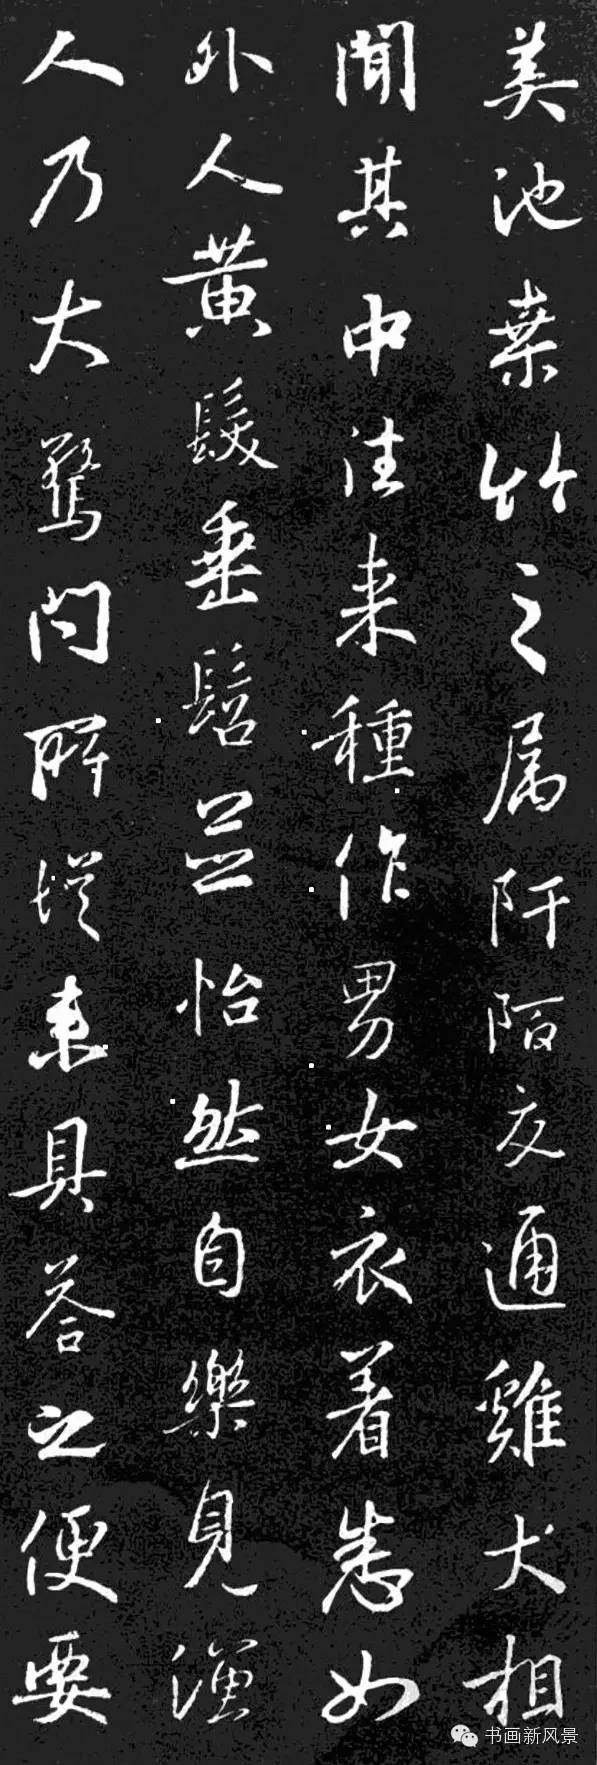 美池桑竹之属阡陌交通雞犬相
聞其中往来種作男女衣着悉如
外人黄髮垂髫並怡然自樂見漁
人乃大驚問所従来具荅之便要
书画新风景